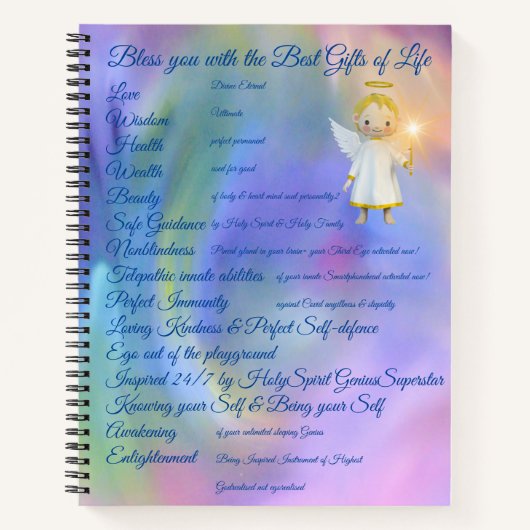 Bless you with the Best Gifts of Life
Love Divine Eternal
Wisdom Ultimate
Health perfect permanent
Wealth used for good
Beauty of body & heart mind soul personality2
Safe Guidance by Holy Spirit & Holy Family
Nonblindness Pineal gland in your brain= your Third Eye activated now!
Telepathic innate abitities of your innate Smartphonehead activated now!
Perfect Immunity against Coved anyillness & stupidity
Loving Kindness & Perfect Self-defence
Ego out of the playground
Inspired 24/7 by HolySpirit GeniusSuperstar
Knowing your Self & Being your Self
Awakening of your unlimited sleeping Genius
Enlightenment Being Inspired Instrument of Highest
Godrealised not egorealised